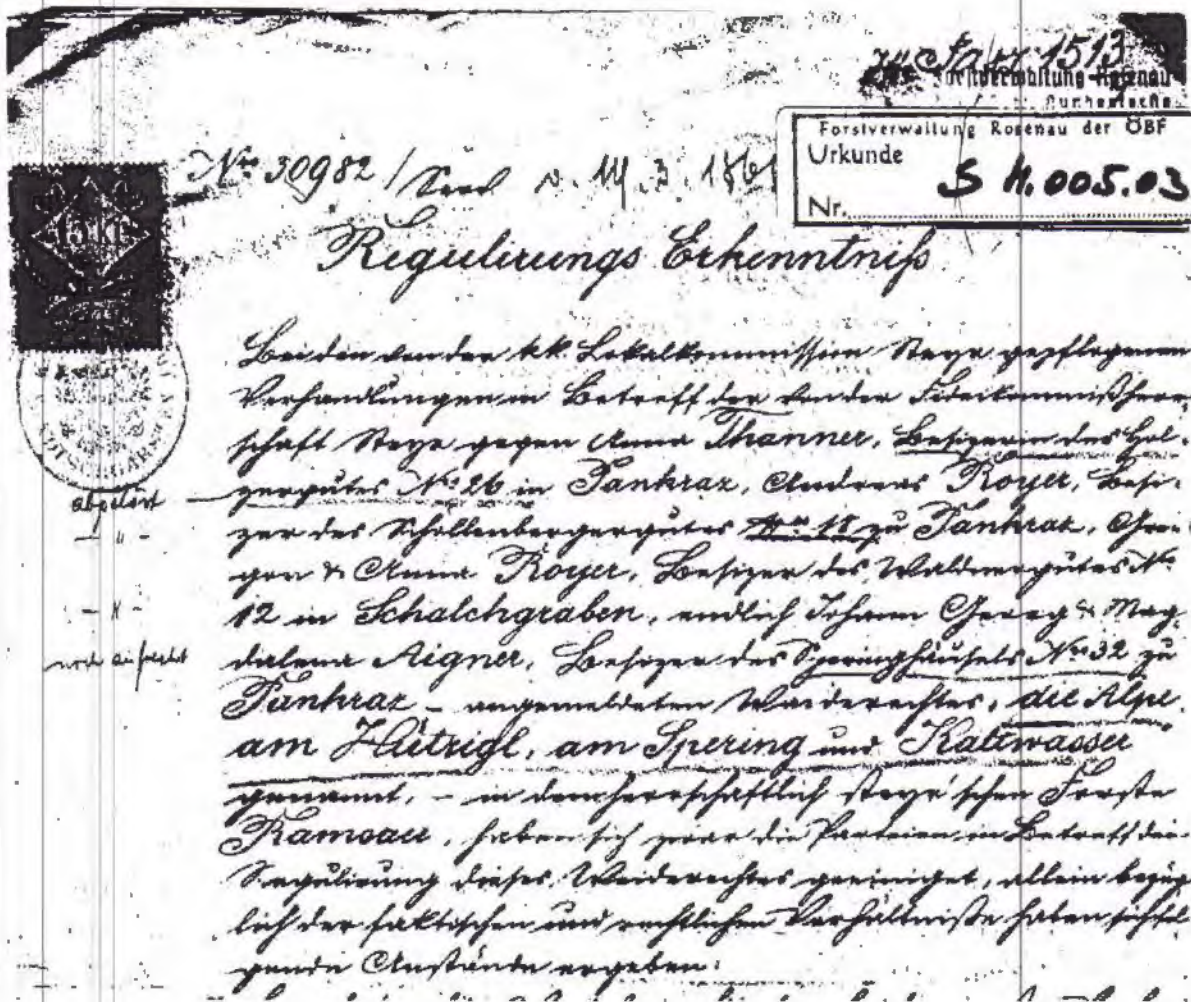 1513
Forstverwaltung Rosenau
Forstverwaltung Rosenau der ÖBF
Urkunde
S H.005.03
Nr.
Nro 30982 / Serv v. 14.3.1861
15 Kr
Regulirungs Erkenntniß
Bei den von der kk. Lokalkommission Steyr gepflogenen
Verhandlungen in Betreff der von der Fideikommißherr-
schaft Steyr gegen Anna Thanner, Besizerin des Hol-
abgelöst
zergutes No 26 in Pankraz, Andreas Royer, Besi-
- " -
zer des Schollenbergergutes No 18 zu Pankraz, Gre-
gor & Anna Royer, Besizer des Waldnergutes No
12 in Schalchgraben, endlich Johann Georg & Mag-
dalena Aigner, Besizer des Speringhäusels No 32 zu
Pankraz – angemeldeten Waiderechtes, die Alpe
am Hütrigl, am Spering und Kaltwasser
genannt, – in dem herrschaftlich steyr'schen Forste
Ramsau, haben sich zwar die Parteien in Betreff der
Regulirung dieses Weiderechtes geeiniget, allein bezüg-
lich der faktischen und rechtlichen Verhältniße haben sich fol-
gende Anstände ergeben: